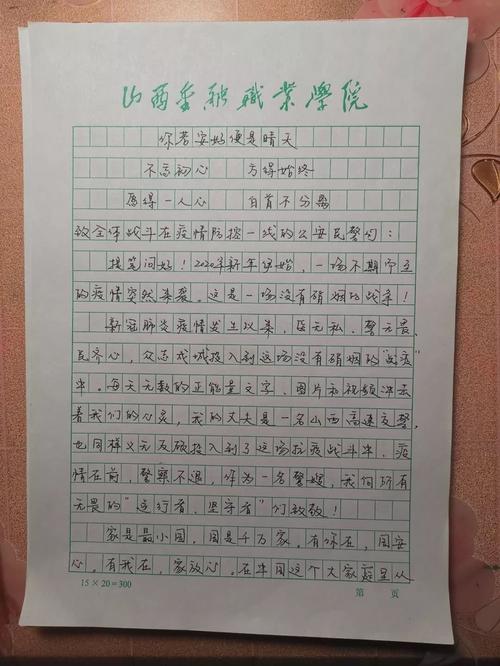 山西金融职业学院
你若安好便是晴天
不忘初心 方得始终
愿得一人心 白首不分离
致全体战斗在疫情防控一线的公安民警们：
提笔问好！2020年新年伊始，一场不期而至
的疫情突然来袭。这是一场没有硝烟的战争！
新冠肺炎疫情发生以来，医无私、警无畏、
民齐心，众志成城投入到这场没有硝烟的“战疫”
中。每天无数的正能量文字、图片和视频冲击
着我们的心灵，我的丈夫是一名山西高速交警，
也同样义无反顾投入到了这场抗疫战斗中。疫
情在前，警察不退，作为一名警嫂，我向所有
无畏的“逆行者、坚守者”们致敬！
家是最小国，国是千万家。有你在，国安
心。有我在，家放心。在中国这个大家庭里从
15×20=300
第 页